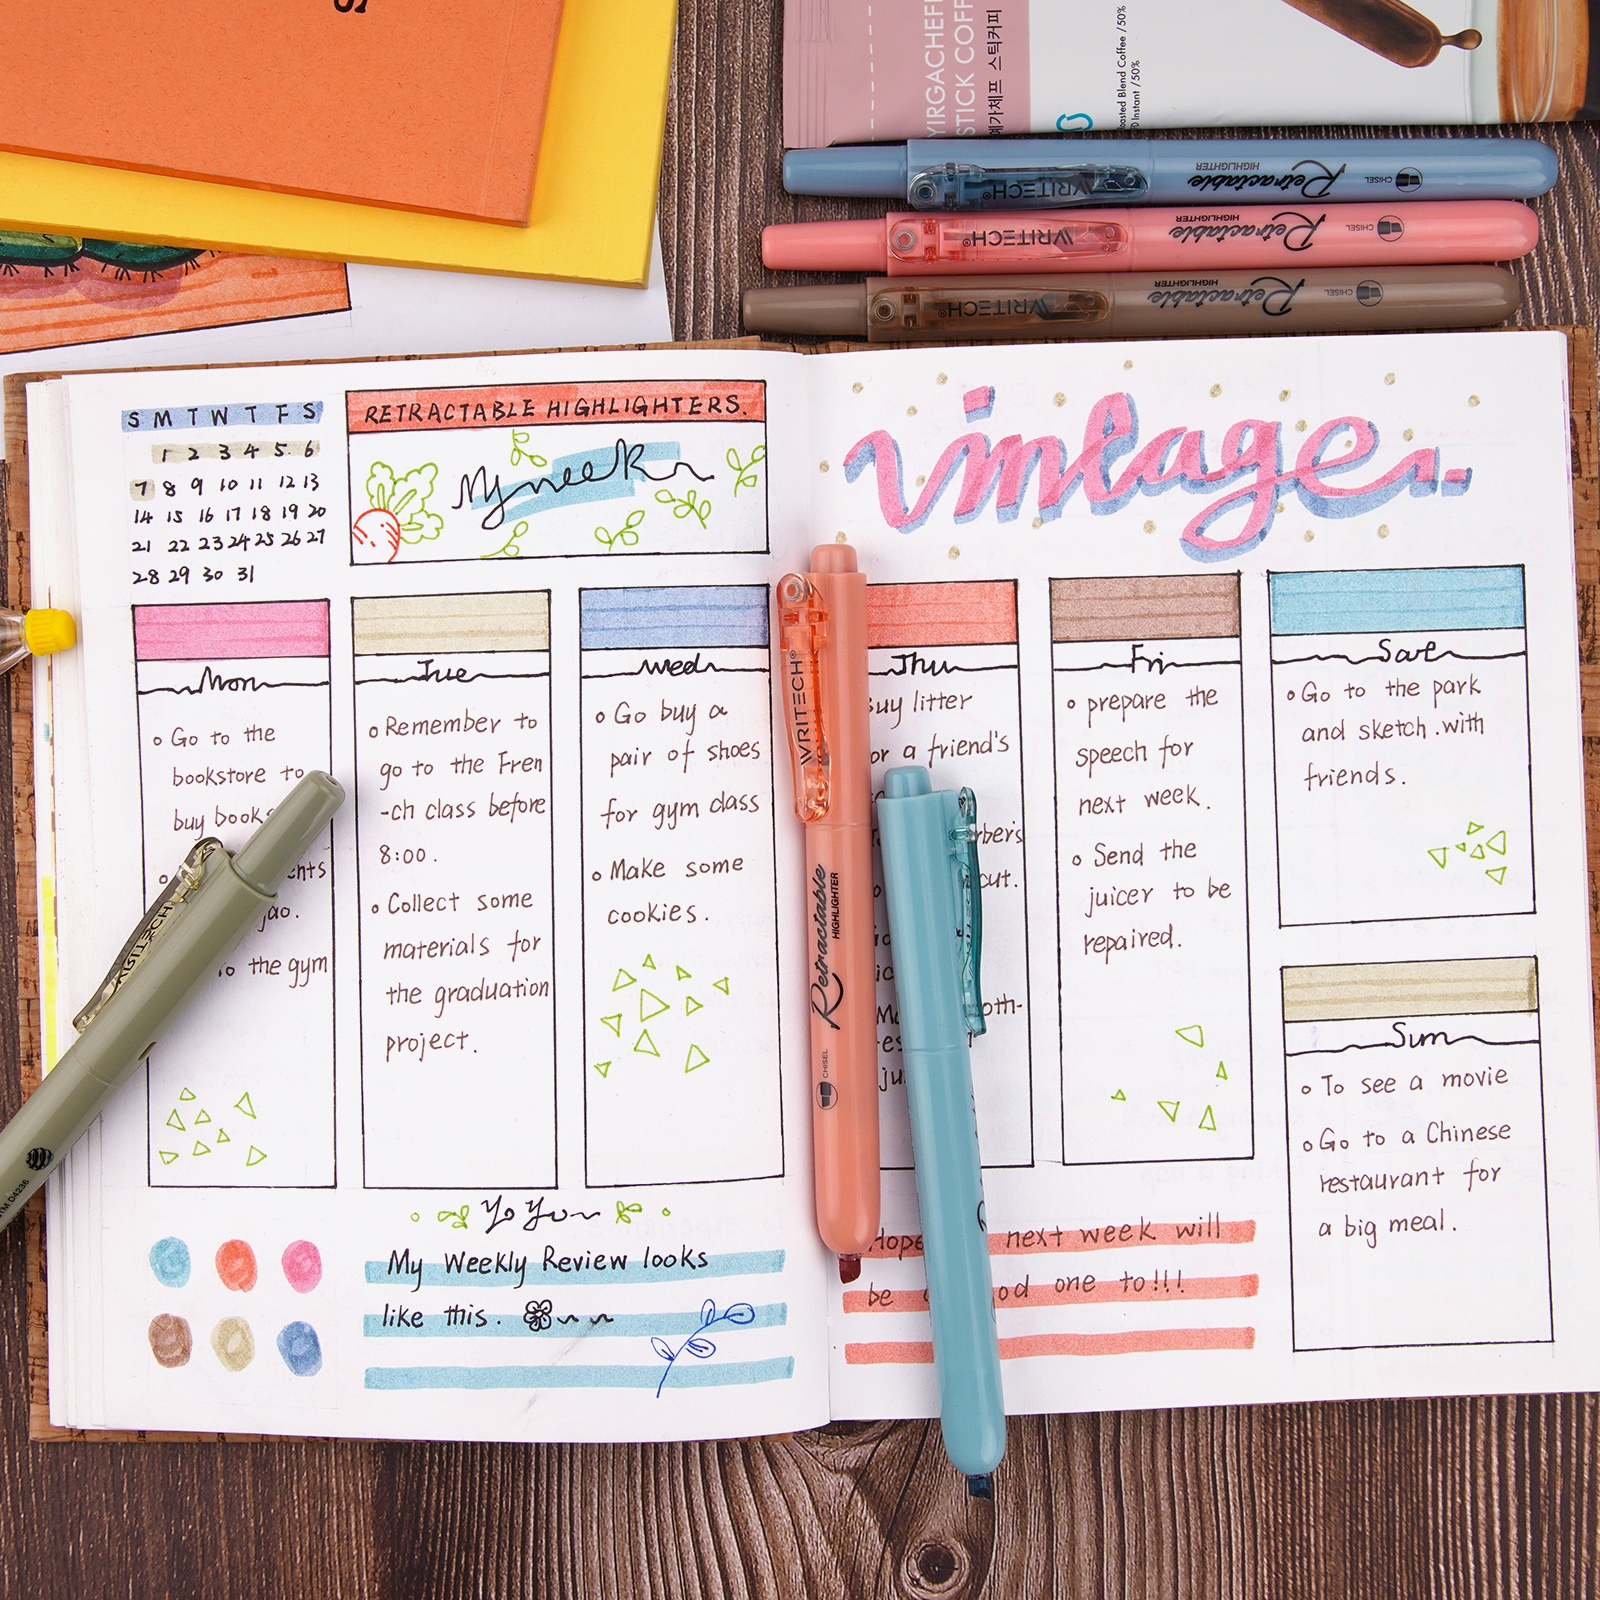 S
YIRGACHEFF
STICK COFF
예가체프 스틱커피
oasted Blend Coffee / 50%
Instant / 50%
WRITECH® Retractable HIGHLIGHTER CHISEL
WRITECH® Retractable HIGHLIGHTER CHISEL
WRITECH® Retractable HIGHLIGHTER CHISEL
S M T W T F S
1 2 3 4 5 6
7 8 9 10 11 12 13
14 15 16 17 18 19 20
21 22 23 24 25 26 27
28 29 30 31
RETRACTABLE HIGHLIGHTERS.
My week
vintage
Mon
Go to the
bookstore to
buy books
ents
jao.
to the gym
Tue
Remember to
go to the Fren
-ch class before
8:00.
Collect some
materials for
the graduation
project.
Wed
Go buy a
pair of shoes
for gym class
Make some
cookies.
Thu
Buy litter
or a friend's
rber's
cut.
oth-
ju
Fri
prepare the
speech for
next week.
Send the
juicer to be
repaired.
Sat
Go to the park
and sketch.with
friends.
Sun
To see a movie
Go to a Chinese
restaurant for
a big meal.
WRITECH
TM D4236
WRITECH®
Retractable
HIGHLIGHTER
CHISEL
Yo Yo
My Weekly Review looks
like this.
Hope next week will
be od one to!!!